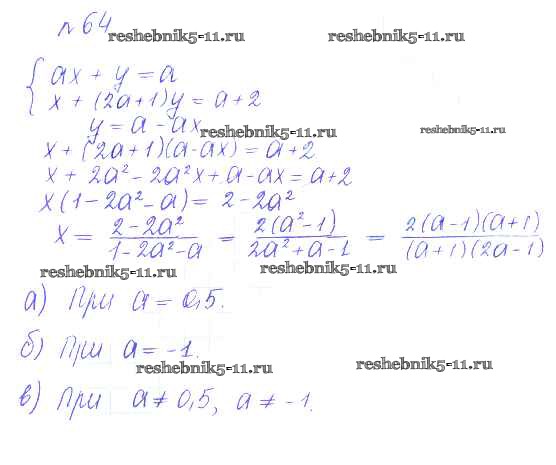 № 64
reshebnik5-11.ru
reshebnik5-11.ru
{ ax + y = a
x + (2a+1)y = a+2
y = a - ax
reshebnik5-11.ru
reshebnik5-11.ru
x + (2a+1)(a-ax) = a+2
x + 2a² - 2a²x + a - ax = a+2
x(1-2a²-a) = 2-2a²
x = (2-2a²)/(1-2a²-a) = 2(a²-1)/(2a²+a-1) = 2(a-1)(a+1)/((a+1)(2a-1))
reshebnik5-11.ru
reshebnik5-11.ru
а) При a = 0,5.
б) При a = -1.
reshebnik5-11.ru
reshebnik5-11.ru
в) При a ≠ 0,5, a ≠ -1.